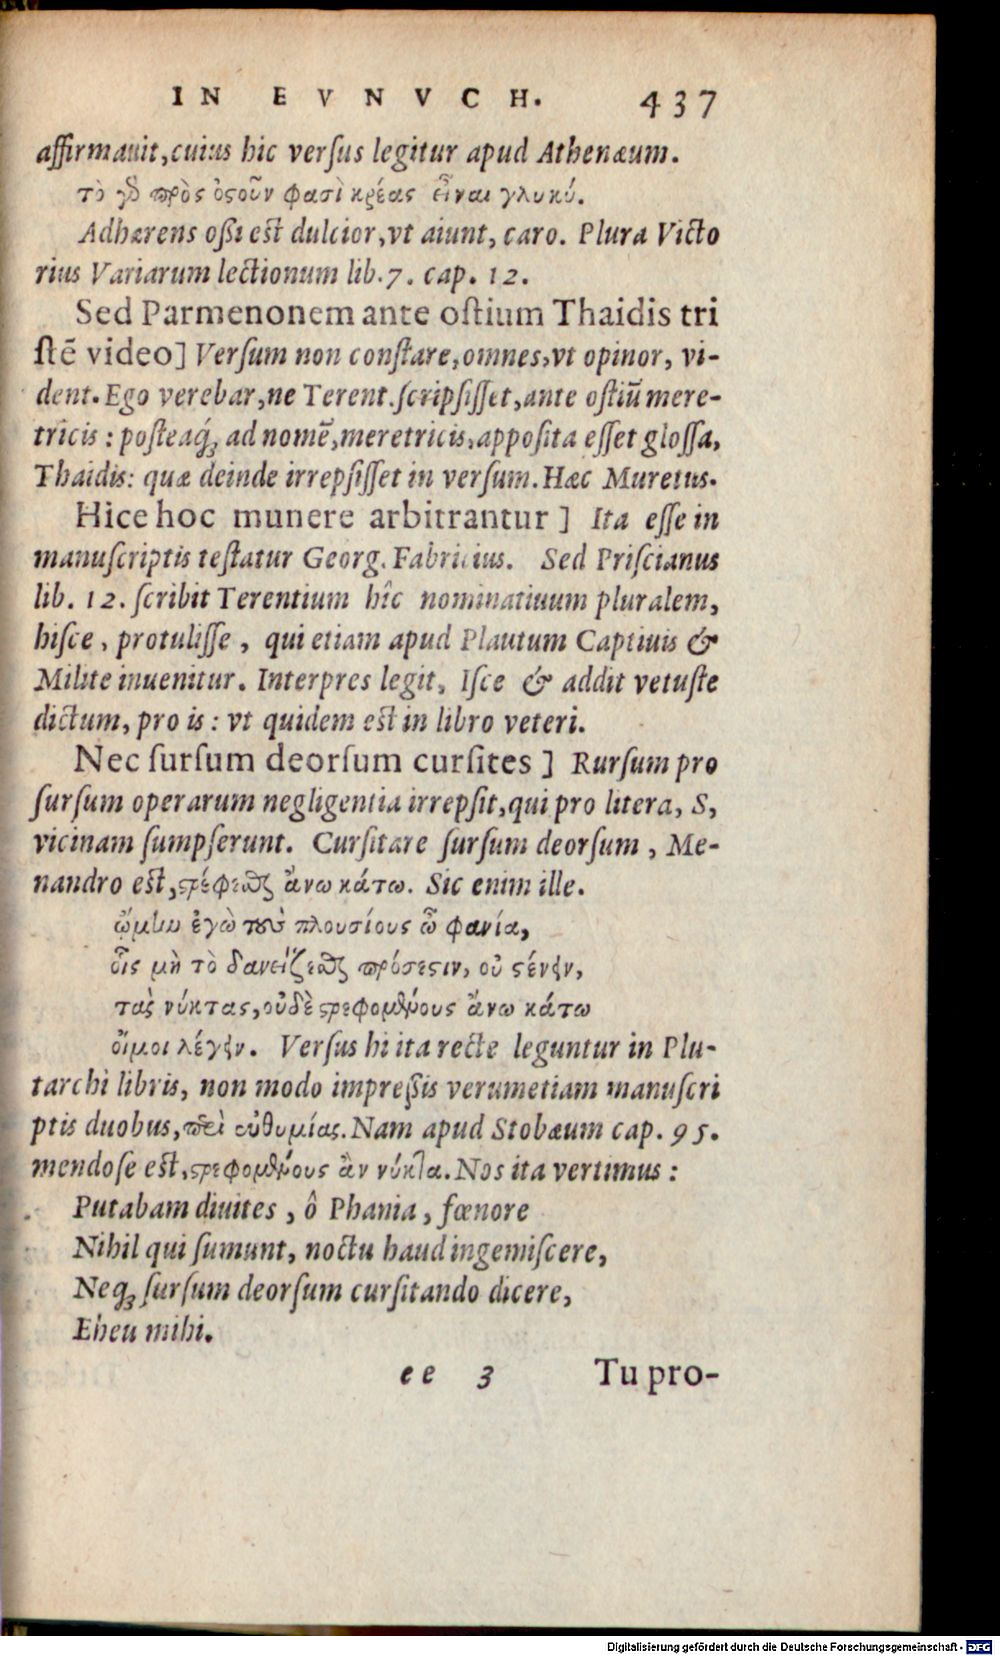 IN EVNVCH. 437
affirmauit, cuius hic versus legitur apud Athenæum.
τὸ γὸ πρὸς ὀστοῦν φασὶ κρέας εἶναι γλυκύ.
Adhærens ossi est dulcior, vt aiunt, caro. Plura Victo
rius Variarum lectionum lib. 7. cap. 12.
Sed Parmenonem ante ostium Thaidis tri
stē video] Versum non constare, omnes, vt opinor, vi-
dent. Ego verebar, ne Terent. scripsisset, ante ostiū mere-
tricis: posteaq́; ad nomē, meretricis, apposita esset glossa,
Thaidis: quæ deinde irrepsisset in versum. Hæc Muretus.
Hice hoc munere arbitrantur] Ita esse in
manuscriptis testatur Georg. Fabricius. Sed Priscianus
lib. 12. scribit Terentium hîc nominatiuum pluralem,
hisce, protulisse, qui etiam apud Plautum Captiuis &
Milite inuenitur. Interpres legit, Isce & addit vetuste
dictum, pro is: vt quidem est in libro veteri.
Nec sursum deorsum cursites] Rursum pro
sursum operarum negligentia irrepsit, qui pro litera, S,
vicinam sumpserunt. Cursitare sursum deorsum, Me-
nandro est, στρέφεσθαι ἄνω κάτω. Sic enim ille.
ᾤμην ἐγὼ τοὺς πλουσίους ὦ φανία,
οἷς μὴ τὸ δανείζεσθαι πρόσεστιν, οὐ στένειν,
τὰς νύκτας, οὐδὲ στρεφομένους ἄνω κάτω
οἴμοι λέγειν. Versus hi ita recte leguntur in Plu-
tarchi libris, non modo impressis verumetiam manuscri
ptis duobus, περὶ εὐθυμίας. Nam apud Stobæum cap. 95.
mendose est, στρεφομένους ἂν νύκτα. Nos ita vertimus:
Putabam diuites, ô Phania, fœnore
Nihil qui sumunt, noctu haud ingemiscere,
Neq́; sursum deorsum cursitando dicere,
Eheu mihi.
ee 3 Tu pro-
Digitalisierung gefördert durch die Deutsche Forschungsgemeinschaft - DFG